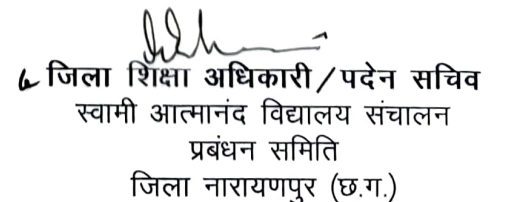 जिला शिक्षा अधिकारी/पदेन सचिव
स्वामी आत्मानंद विद्यालय संचालन
प्रबंधन समिति
जिला नारायणपुर (छ.ग.)